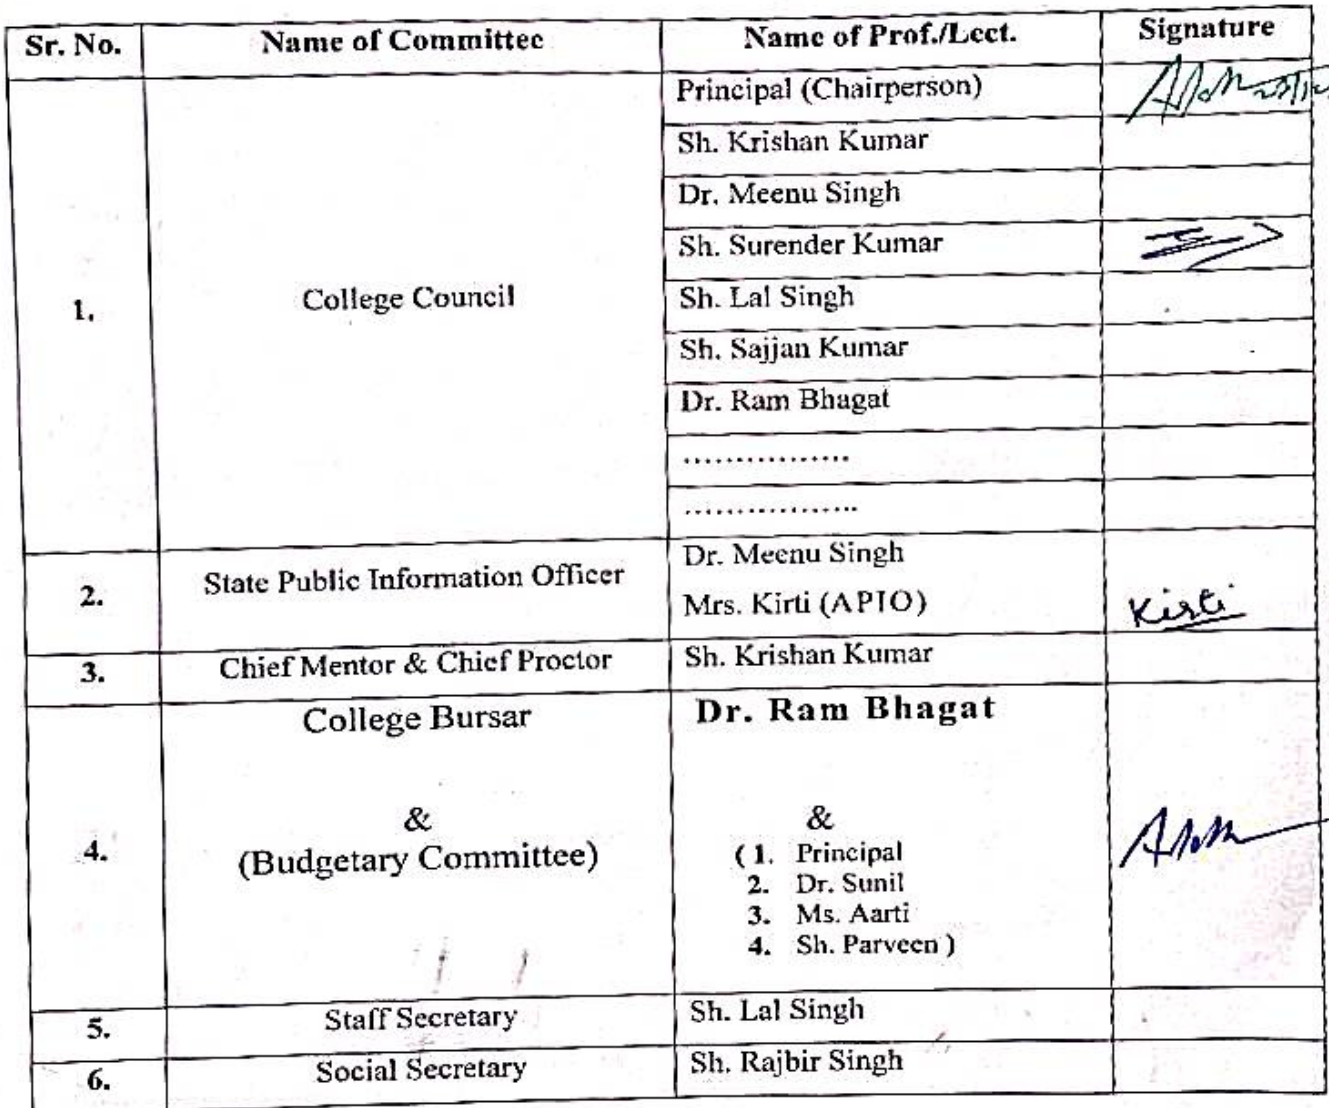 Sr. No. Name of Committee Name of Prof./Lect. Signature
Principal (Chairperson)
Sh. Krishan Kumar
Dr. Meenu Singh
Sh. Surender Kumar
1. College Council Sh. Lal Singh
Sh. Sajjan Kumar
Dr. Ram Bhagat
................
.................
2. State Public Information Officer Dr. Meenu Singh
Mrs. Kirti (APIO) Kirti
3. Chief Mentor & Chief Proctor Sh. Krishan Kumar
College Bursar Dr. Ram Bhagat
& &
4. (Budgetary Committee) (1. Principal
2. Dr. Sunil
3. Ms. Aarti
4. Sh. Parveen )
5. Staff Secretary Sh. Lal Singh
6. Social Secretary Sh. Rajbir Singh